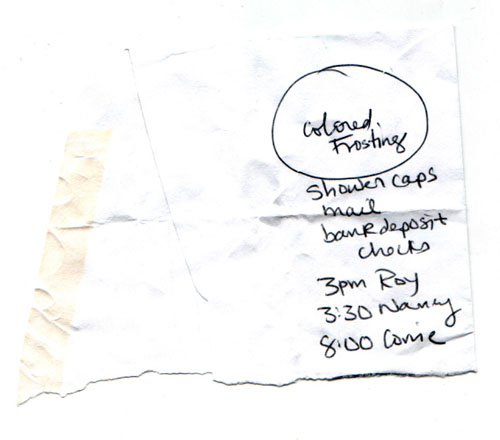 colored
Frosting
shower caps
mail
bank deposit
checks
3pm Roy
3:30 Nancy
8:00 Corrie